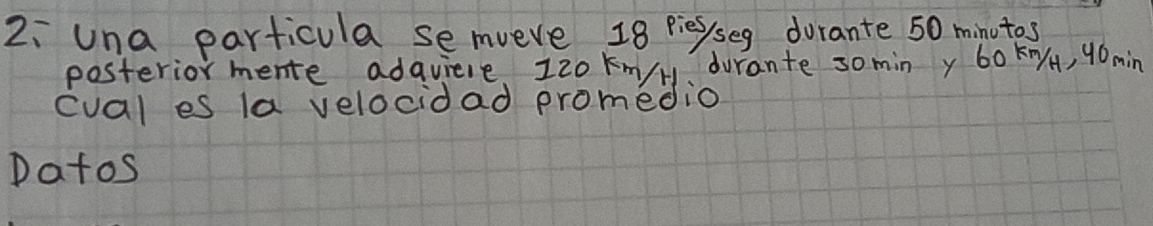 2: Una particula se mueve 18 Pies/seg durante 50 minutos
posteriormente adquiere 120 Km/H durante 30 min y 60 Km/H, 40 min
cual es la velocidad promedio
Datos